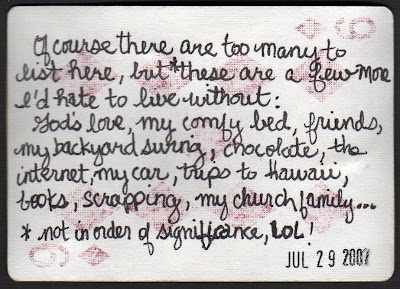 Of course there are too many to
list here, but *these are a few more
I'd hate to live without:
God's love, my comfy bed, friends,
my backyard swing, chocolate, the
internet, my car, trips to Hawaii,
books, scrapping, my church family...
* not in order of significance, LOL!
JUL 29 2007
9
9